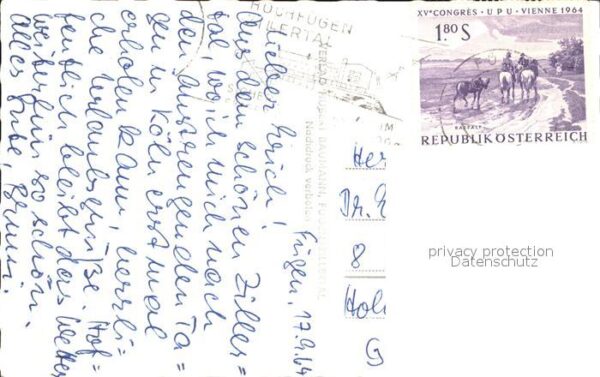 Fügen, 17.9.64
Lieber Erich!
Aus dem schönen Ziller=
tal, wo ich mich nach
den anstrengenden Ta=
gen in Köln erst mal
erholen kann, herrli=
che Urlaubsgrüße. Hof=
fentlich bleibt das Wetter
weiterhin so schön.
Alles Gute,
HOCHFÜGEN
ZILLERTAL
Nachdruck verboten
XV° CONGRÈS · UPU · VIENNE 1964
1.80 S
RASTALP
REPUBLIK ÖSTERREICH
Her
Dr. E
8
Hol
G
privacy protection
Datenschutz